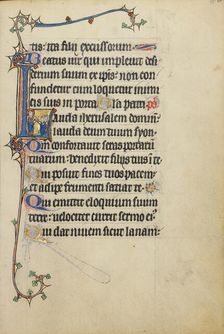 tis: ita filij excussorum
Beatus uir qui impleuit desi
derium suum ex ipis: non con
fundetur cum loquetur inimi
cis suis in porta Gla patri ps
Lauda iherusalem domin
lauda deum tuum syon
Qm confortauit seras portar
tuarum: benedixit filijs tuis i te
Qui posuit fines tuos pacem
et adipe frumenti satiat te
Qui emittit eloquium suum
terre: uelociter currit sermo ei
Qui dat niuem sicut lanam